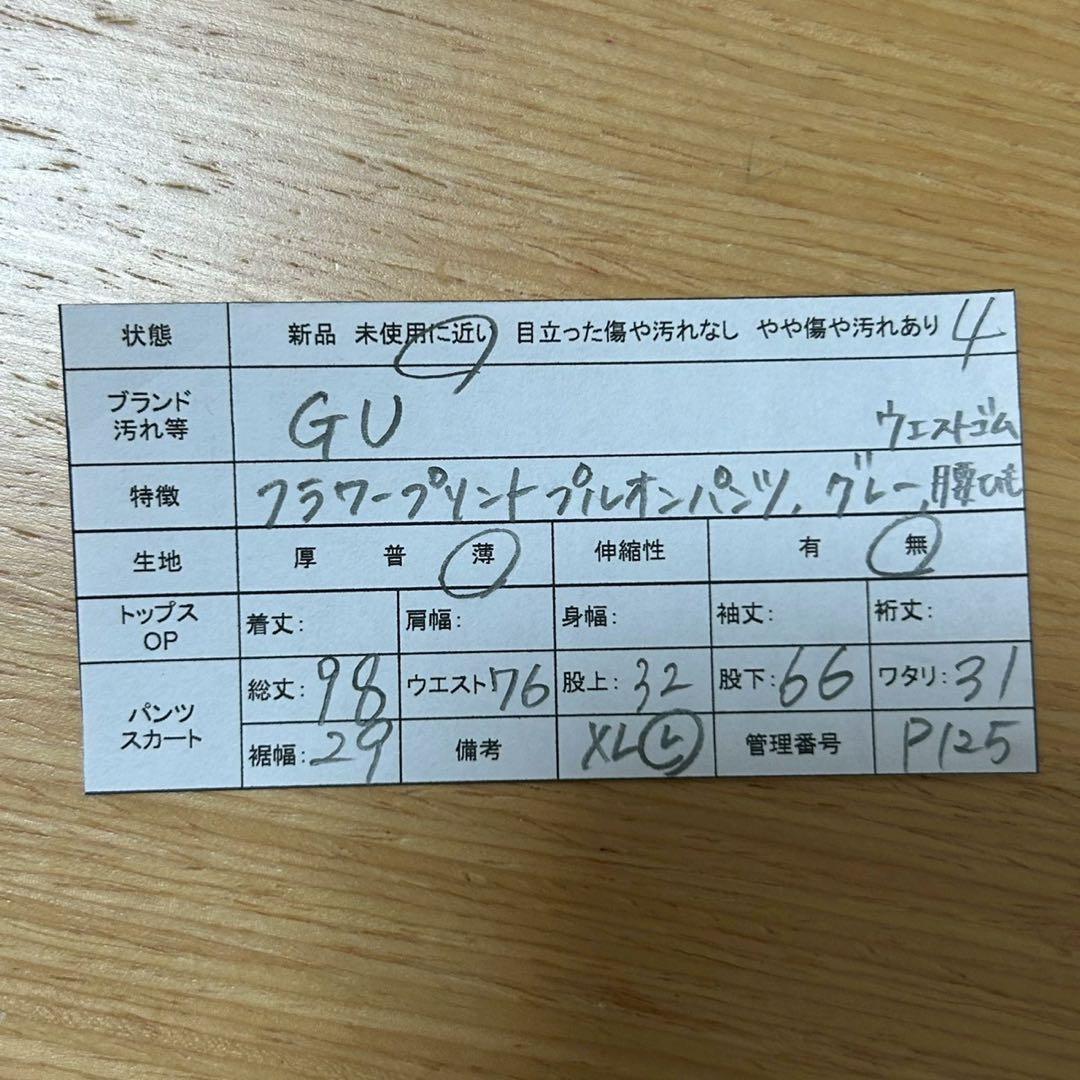 状態 新品 未使用に近い 目立った傷や汚れなし やや傷や汚れあり 4
ブランド
汚れ等 GU ウエストゴム
特徴 フラワープリントプルオンパンツ、グレー、腰ひも
生地 厚 普 薄 伸縮性 有 無
トップス
OP 着丈: 肩幅: 身幅: 袖丈: 裄丈:
パンツ
スカート 総丈:98 ウエスト:76 股上:32 股下:66 ワタリ:31
裾幅:29 備考 XL L 管理番号 P125